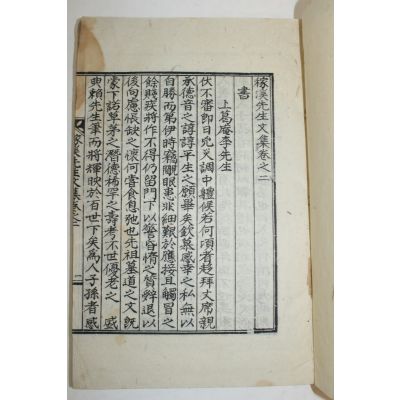 稼溪先生文集卷之二
書
上葛庵李先生
伏不審即日兇災調中體候若何頃者趍拜丈席親
承德音之諄諄平生之願畢矣欽慕感幸之私無以
自勝而第伊時竊覵眼患非細艱於應接且觸冒之
餘賤疾將作不得仍留門下以警昏惰之習辭退以
後向慮悵恨之懷何嘗食息弛也先祖墓道之文旣
蒙下諾單茅之潛德稀罕之壽考不世優老之 盛
典賴先生筆而將輝映於百世下矣爲人子孫者感
稼溪先生文集卷之二